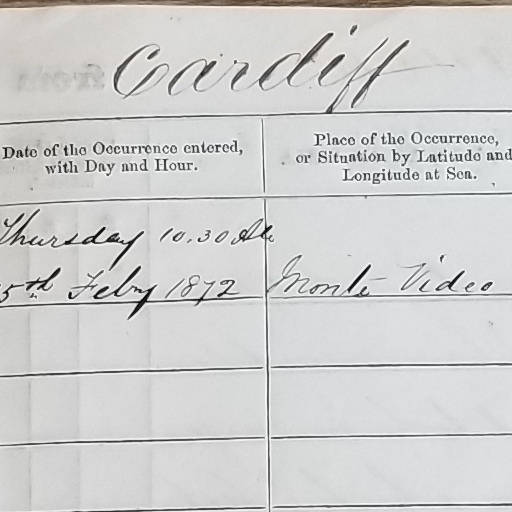 Cardiff
Date of the Occurrence entered,
with Day and Hour.
Place of the Occurrence,
or Situation by Latitude and
Longitude at Sea.
Thursday 10.30 AM
5th Febry 1872
Monte Video